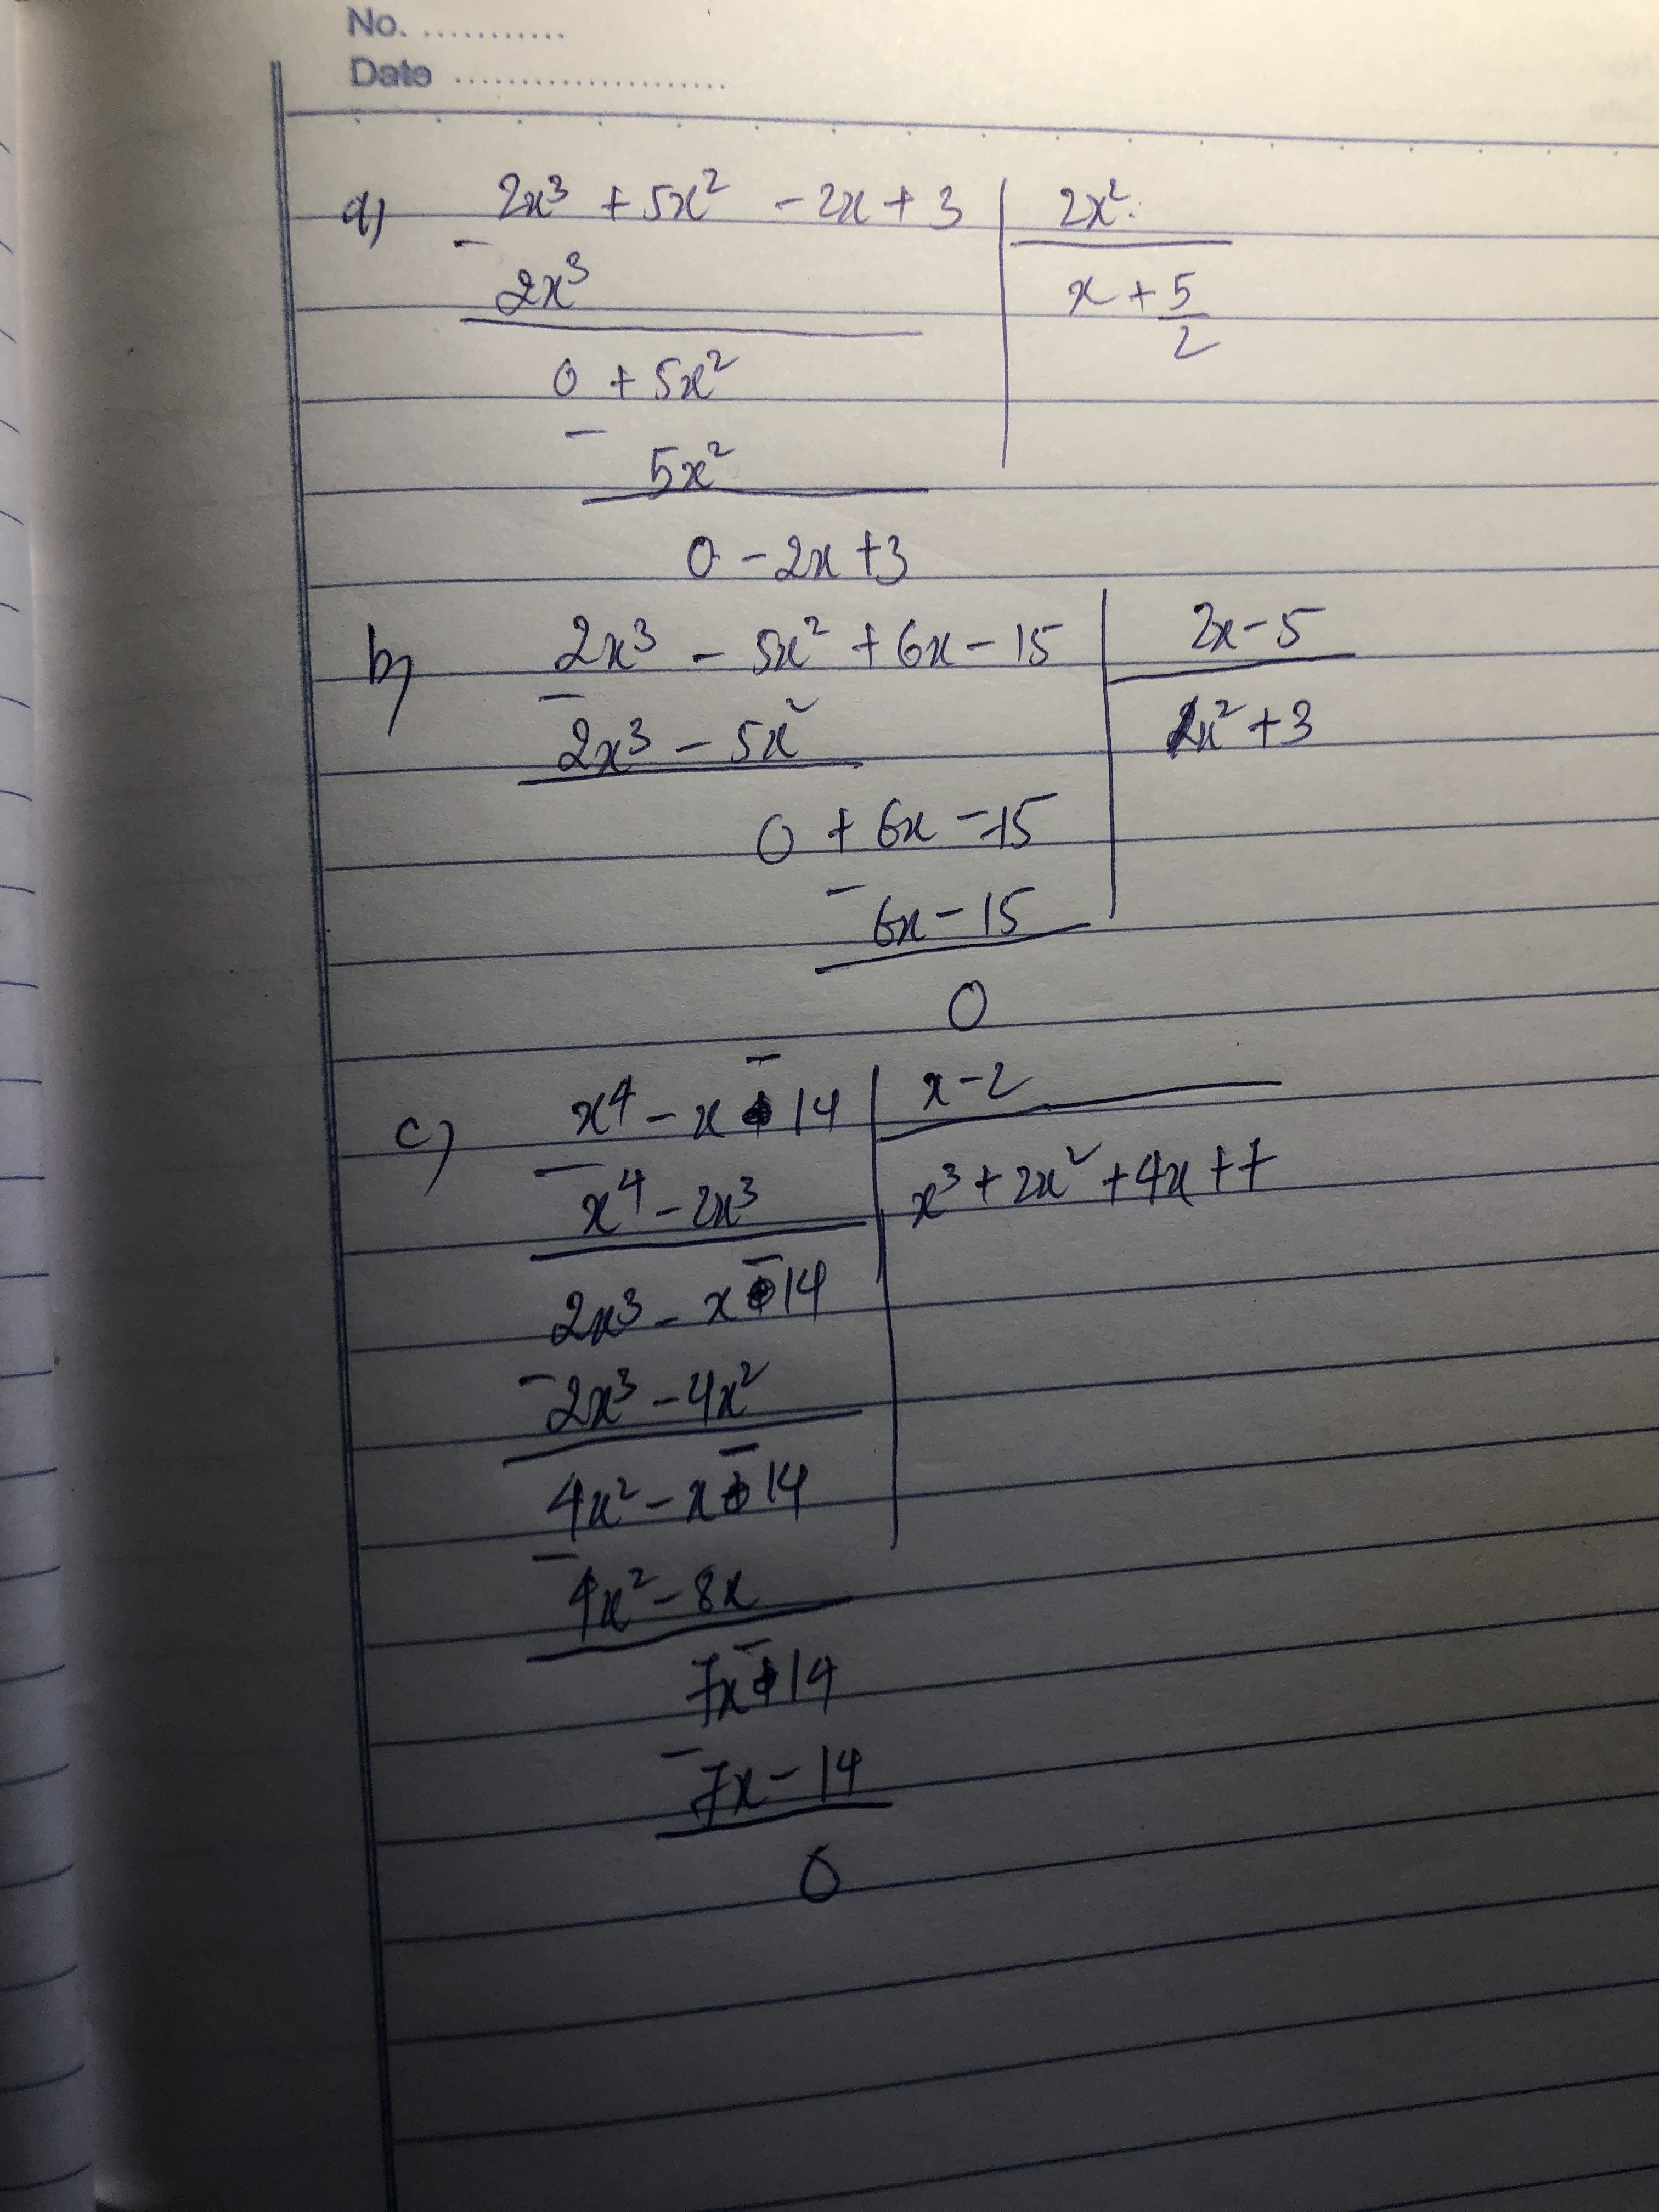 No. ...........
Date .....................
a) 2x³ + 5x² - 2x + 3 | 2x²
- 2x³ | x + 5/2
0 + 5x²
- 5x²
0 - 2x + 3
b) 2x³ - 5x² + 6x - 15 | 2x - 5
- 2x³ - 5x² | x² + 3
0 + 6x - 15
- 6x - 15
0
c) x⁴ - x - 14 | x - 2
- x⁴ - 2x³ | x³ + 2x² + 4x + 7
2x³ - x - 14
- 2x³ - 4x²
4x² - x - 14
- 4x² - 8x
7x - 14
- 7x - 14
0